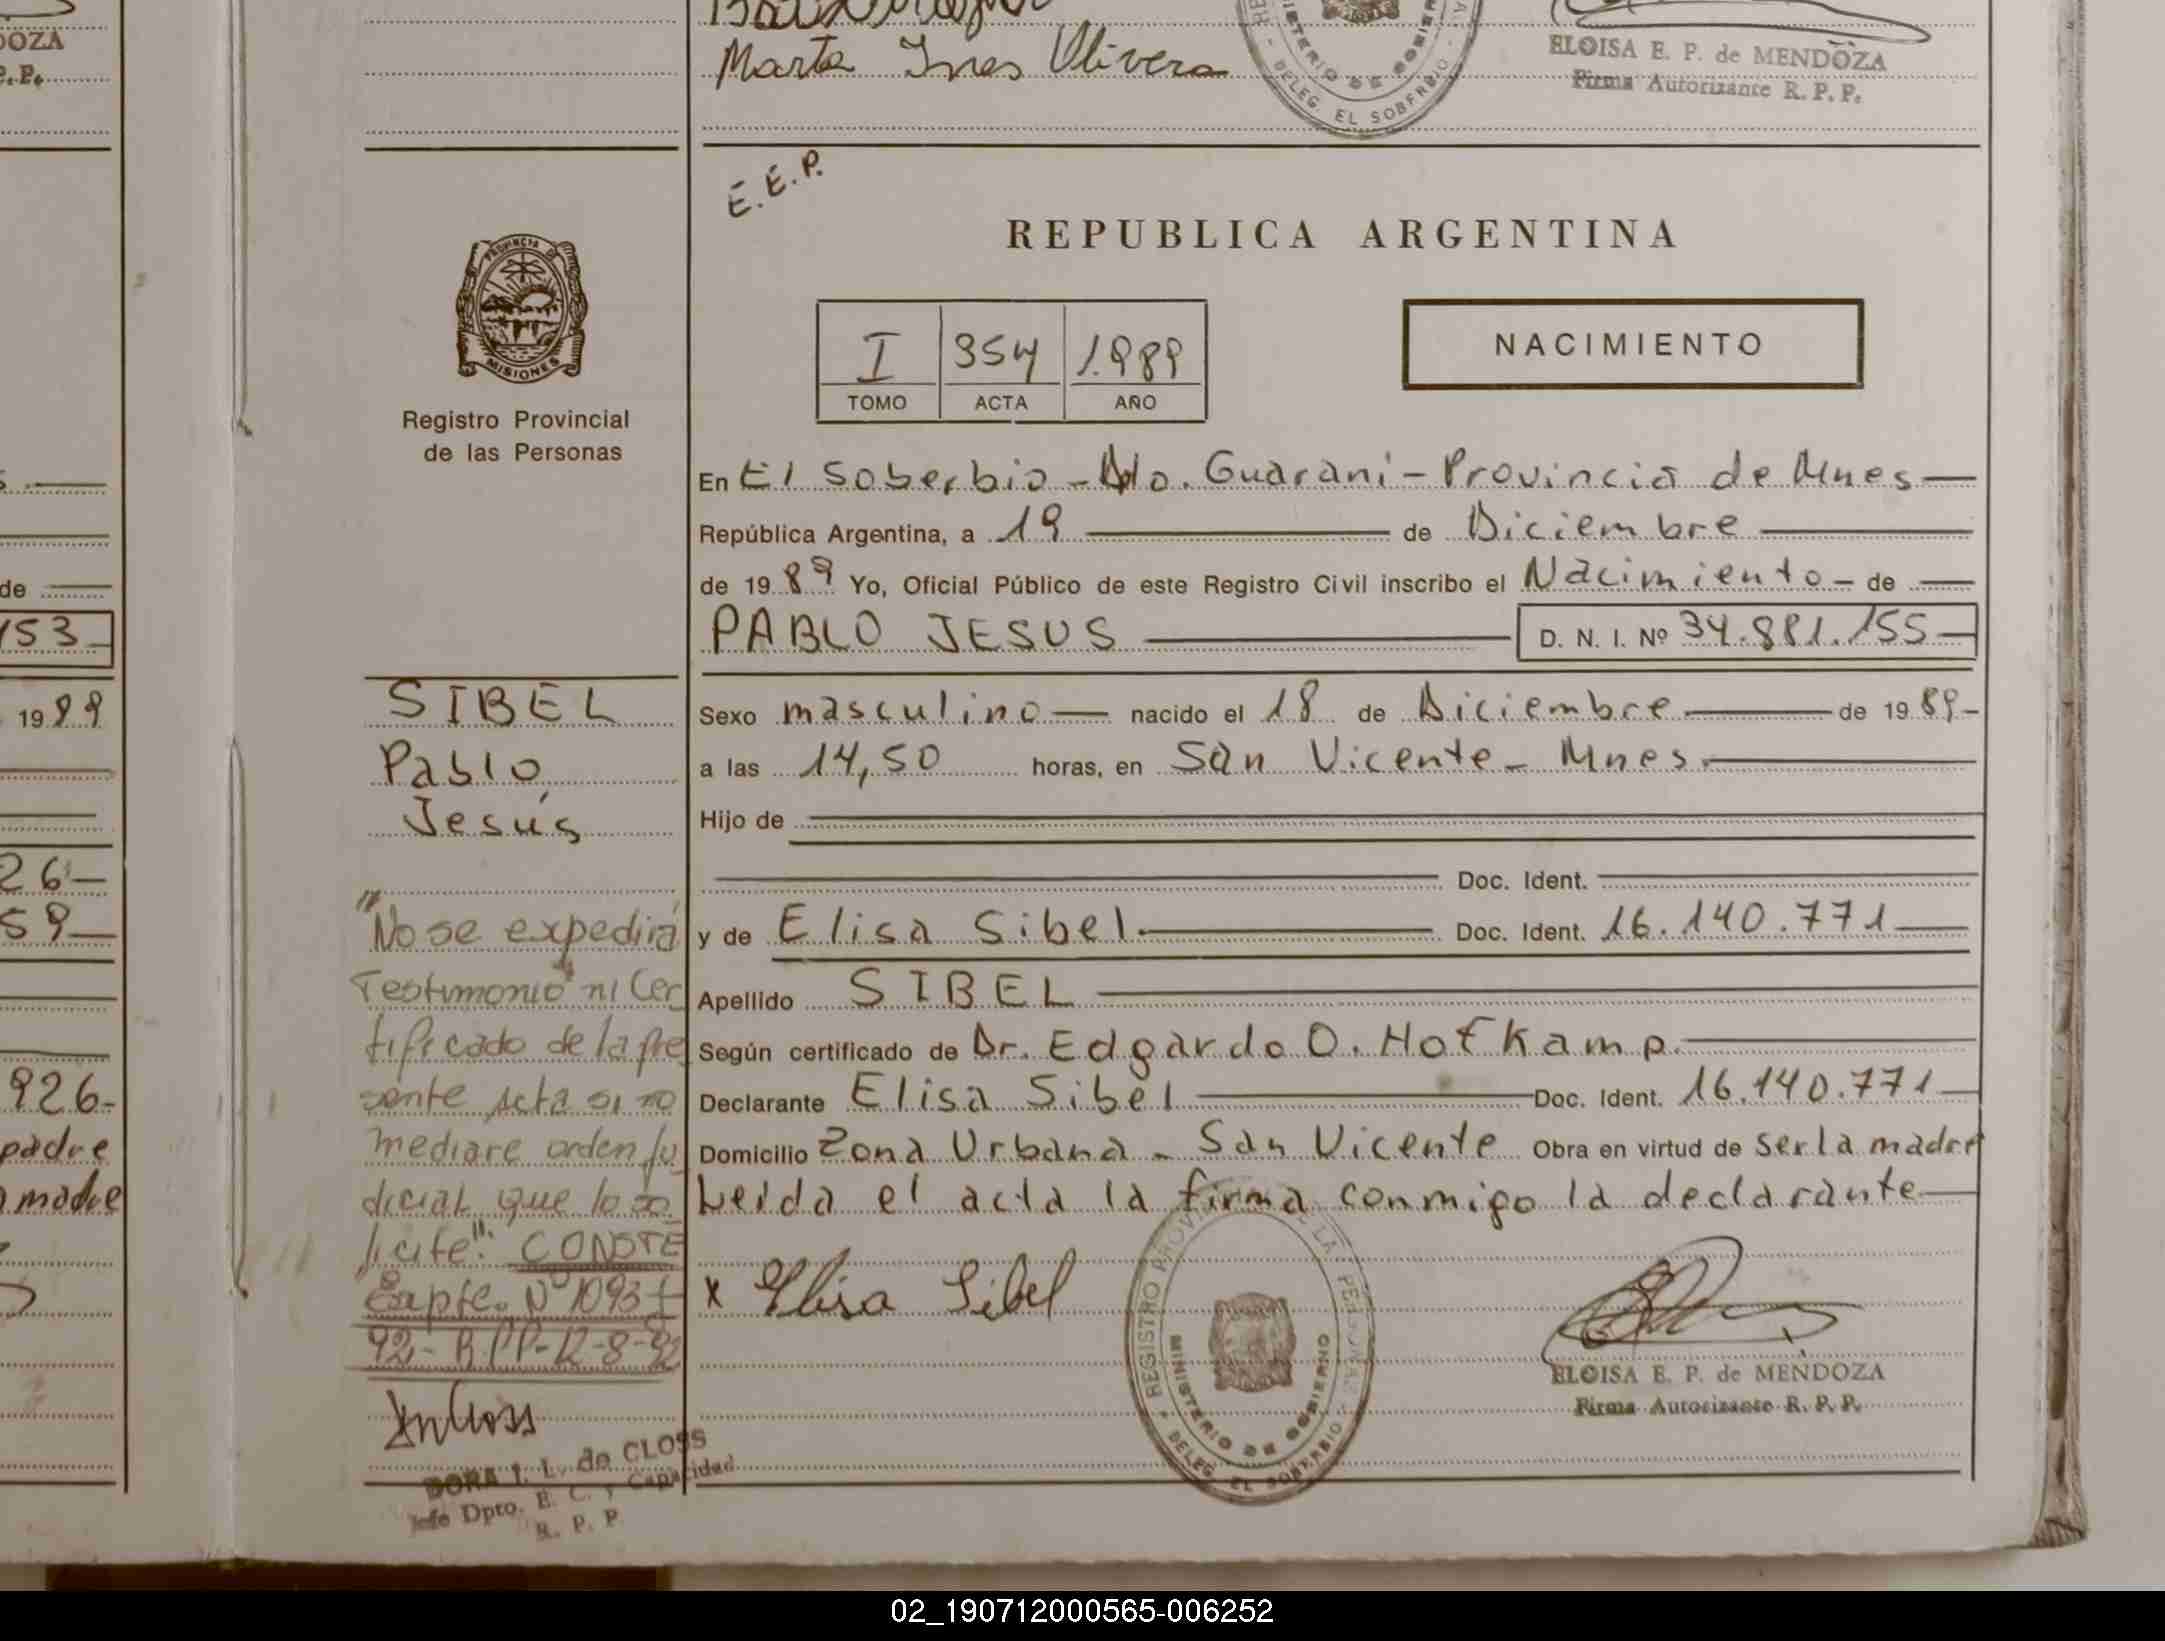 DOZA
R. P.
Marta Ines Olivera
DELEG. EL SOBERBIO
MINISTERIO DE GOBIERNO
ELOISA E. P. de MENDOZA
Firma Autorizante R. P. P.
E. E. P.
REPUBLICA ARGENTINA
PROVINCIA DE
MISIONES
Registro Provincial
de las Personas
I 354 1.989
TOMO ACTA AÑO
NACIMIENTO
En El Soberbio - Dto. Guaraní - Provincia de Mnes
República Argentina, a 19 de Diciembre
de 1989 Yo, Oficial Público de este Registro Civil inscribo el Nacimiento de
PABLO JESUS D. N. I. Nº 34.881.155
SIBEL
Pablo
Jesús
Sexo masculino nacido el 18 de Diciembre de 1989
a las 14,50 horas, en San Vicente - Mnes.
Hijo de
Doc. Ident.
y de Elisa Sibel Doc. Ident. 16.140.771
Apellido SIBEL
Según certificado de Dr. Edgardo O. Hofkamp.
Declarante Elisa Sibel Doc. Ident. 16.140.771
Domicilio Zona Urbana - San Vicente Obra en virtud de ser la madre
Leida el acta la firma conmigo la declarante
"No se expedirá
Testimonio ni Cer
tificado de la pre
sente Acta si no
mediare orden ju
dicial que lo so
licite". CONSTE
Expte. Nº 1093-
92- R.PP-12-8-92
x Elisa Sibel
REGISTRO PROVINCIAL DE LAS PERSONAS
MINISTERIO DE GOBIERNO
DELEG. EL SOBERBIO
ELOISA E. P. de MENDOZA
Firma Autorizante R. P. P.
DORA I. L. de CLOSS
Jefe Dpto. E. C. y Capacidad
R. P. P
de
153
1989
26
59
926
padre
madre
02_190712000565-006252